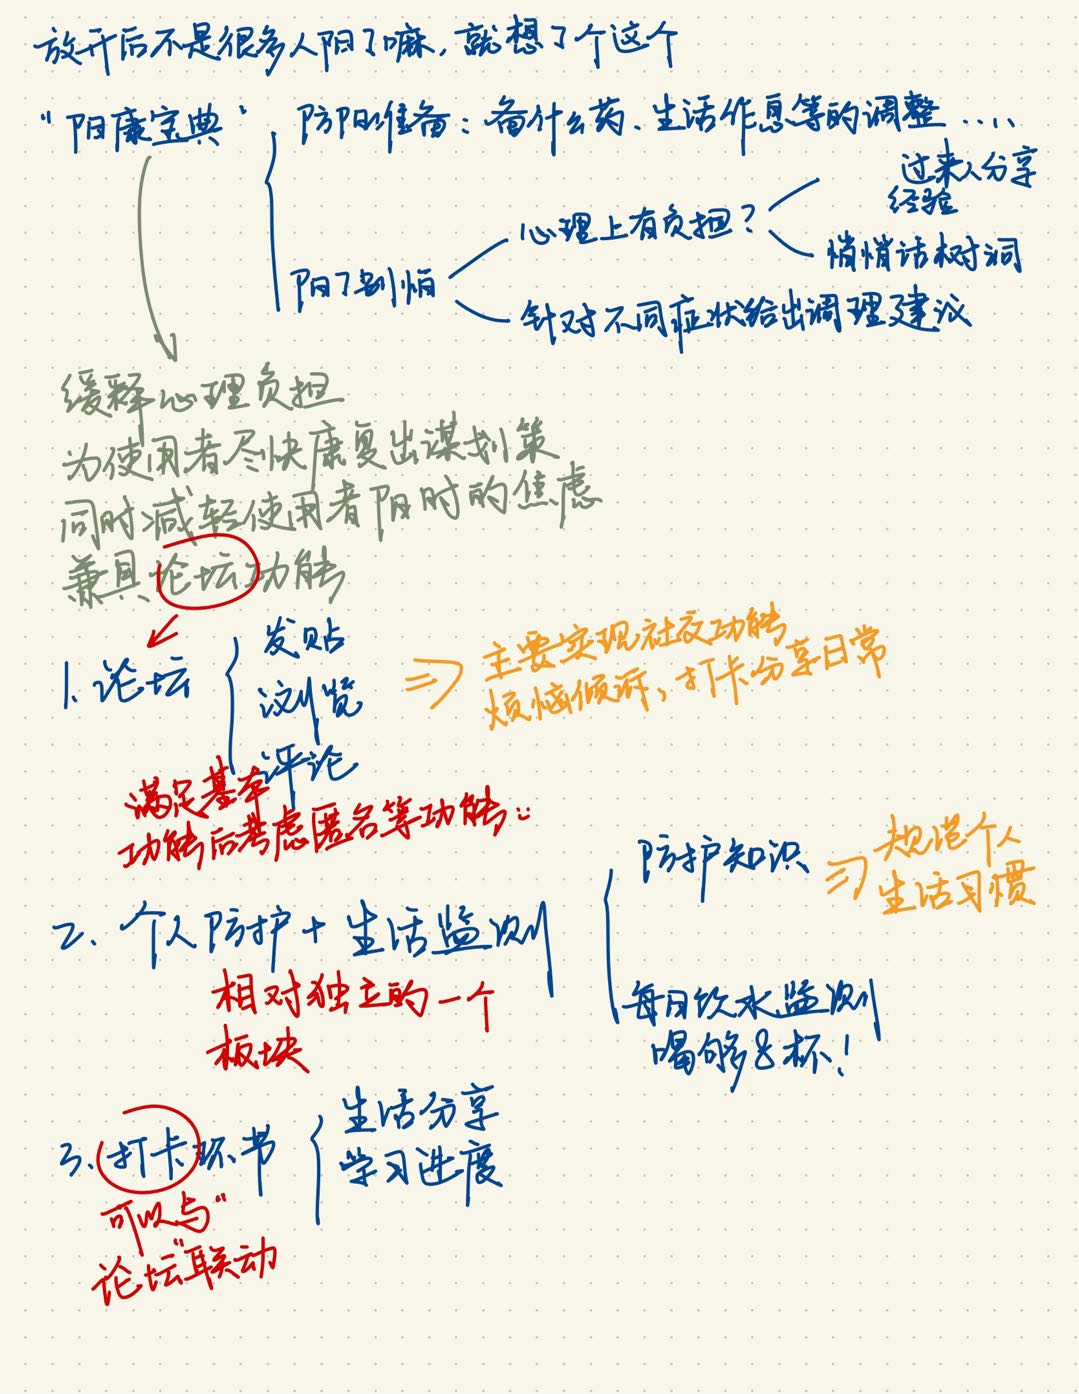 放开后不是很多人阳了嘛,就想了个这个
“阳康宝典”
防阳准备:备什么药、生活作息等的调整....
阳了别怕
心理上有负担?
过来人分享
经验
悄悄话树洞
针对不同症状给出调理建议
缓释心理负担
为使用者尽快康复出谋划策
同时减轻使用者阳时的焦虑
兼具论坛功能
1.论坛
发贴
浏览
评论
主要实现社交功能
烦恼倾诉,打卡分享日常
满足基本
功能后考虑匿名等功能..
2、个人防护+生活监测
相对独立的一个
板块
防护知识
规范个人
生活习惯
每日饮水监测
喝够8杯!
3、打卡环节
生活分享
学习进度
可以与“
论坛”联动